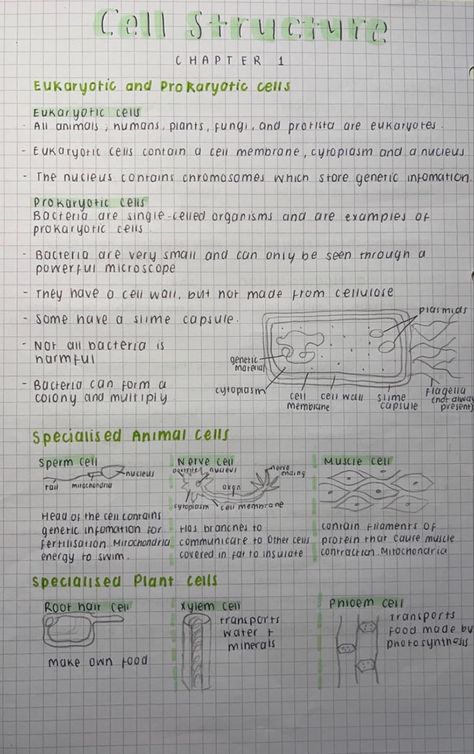 Cell Structure
CHAPTER 1
Eukaryotic and Prokaryotic cells
Eukaryotic cells
- All animals, humans, plants, fungi, and protista are eukaryotes.
- Eukaryotic cells contain a cell membrane, cytoplasm and a nucleus
- The nucleus contains chromosomes which store genetic infomation.
Prokaryotic cells
Bacteria are single-celled organisms and are examples of
prokaryotic cells.
- Bacteria are very small and can only be seen through a
powerful microscope
- They have a cell wall, but not made from cellulose
- Some have a slime capsule.
- Not all bacteria is
harmful
- Bacteria can form a
colony and multiply
plasmids
genetic
material
cytoplasm
cell
membrane
cell wall
slime
capsule
flagella
(not always
present)
Specialised Animal Cells
Sperm cell
nucleus
tail
mitochondria
Head of the cell contains
genetic infomation for
fertilisation. Mitochondria
energy to swim.
Nerve cell
nucleus
nerve
axon
cytoplasm
cell membrane
Has branches to
communicate to other cells
covered in fat to insulate
Muscle cell
contain filaments of
protein that cause muscle
contraction. Mitochondria
Specialised Plant Cells
Root hair cell
make own food
Xylem cell
transports
water +
minerals
Phloem cell
transports
food made by
photosynthesis